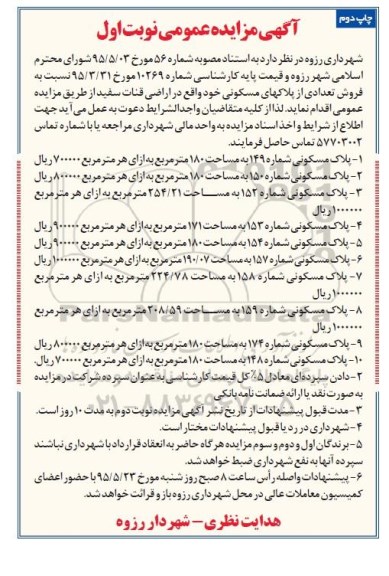 چاپ دوم
آگهی مزایده عمومی نوبت اول
شهرداری رزوه در نظر دارد به استناد مصوبه شماره ۵۶ مورخ ۹۵/۵/۰۳ شورای محترم
اسلامی شهر رزوه و قیمت پایه کارشناسی شماره ۱۰۲۶۹ مورخ ۹۵/۳/۳۱ نسبت به
فروش تعدادی از پلاکهای مسکونی خود واقع در اراضی قنات سفید از طریق مزایده
عمومی اقدام نماید. لذا از کلیه متقاضیان واجدالشرایط دعوت به عمل می آید جهت
اطلاع از شرایط و اخذ اسناد مزایده به واحد مالی شهرداری مراجعه یا با شماره تماس
۵۷۷۰۳۰۰۲ تماس حاصل فرمایند.
۱- پلاک مسکونی شماره ۱۴۹ به مساحت ۱۸۰ مترمربع به ازای هر مترمربع ۷۰۰۰۰۰ ریال
۲- پلاک مسکونی شماره ۱۵۰ به مساحت ۱۸۰ مترمربع به ازای هر مترمربع ۸۰۰۰۰۰ ریال
۳- پلاک مسکونی شماره ۱۵۲ به مساحت ۲۵۴/۲۱ مترمربع به ازای هر مترمربع
۱۰۰۰۰۰۰ ریال
۴- پلاک مسکونی شماره ۱۵۳ به مساحت ۱۷۱ مترمربع به ازای هر مترمربع ۹۰۰۰۰۰ ریال
۵- پلاک مسکونی شماره ۱۵۴ به مساحت ۱۸۰ مترمربع به ازای هر مترمربع ۹۰۰۰۰۰ ریال
۶- پلاک مسکونی شماره ۱۵۷ به مساحت ۱۹۰/۰۷ مترمربع به ازای هر مترمربع ۱۰۰۰۰۰۰ ریال
۷- پلاک مسکونی شماره ۱۵۸ به مساحت ۲۲۴/۷۸ مترمربع به ازای هر مترمربع
۱۰۰۰۰۰۰ ریال
۸- پلاک مسکونی شماره ۱۵۹ به مساحت ۲۰۸/۵۹ مترمربع به ازای هر مترمربع
۱۰۰۰۰۰۰ ریال
۹- پلاک مسکونی شماره ۱۷۴ به مساحت ۱۸۰ مترمربع به ازای هر مترمربع ۸۰۰۰۰۰ ریال
۱۰- پلاک مسکونی شماره ۱۴۸ به مساحت ۱۸۰ مترمربع به ازای هر مترمربع ۷۰۰۰۰۰ ریال
۲- دادن سپرده ای معادل ۵٪ کل قیمت کارشناسی به عنوان سپرده شرکت در مزایده
به صورت نقد یا ارائه ضمانت نامه بانکی
۳- مدت قبول پیشنهادات از تاریخ نشر آگهی مزایده نوبت دوم به مدت ۱۰ روز است.
۴- شهرداری در رد یا قبول پیشنهادات مختار است.
۵- برندگان اول و دوم و سوم مزایده هر گاه حاضر به انعقاد قرارداد با شهرداری نباشند
سپرده آنها به نفع شهرداری ضبط خواهد شد.
۶- پیشنهادات واصله رأس ساعت ۸ صبح روز شنبه مورخ ۹۵/۵/۲۳ با حضور اعضای
کمیسیون معاملات عالی در محل شهرداری رزوه باز و قرائت خواهد شد.
هدایت نظری – شهردار رزوه